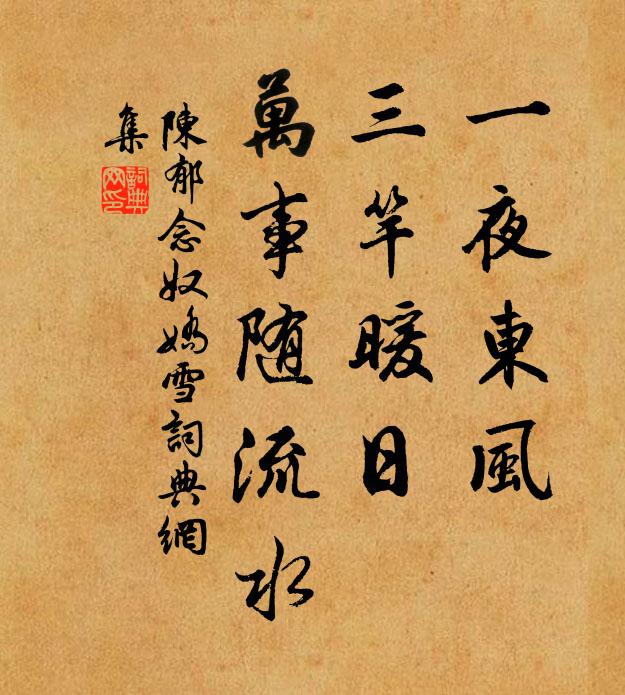 一夜東風
三竿暖日
萬事随流水
陳郁念奴嬌雪詞典網
集
詞典网印